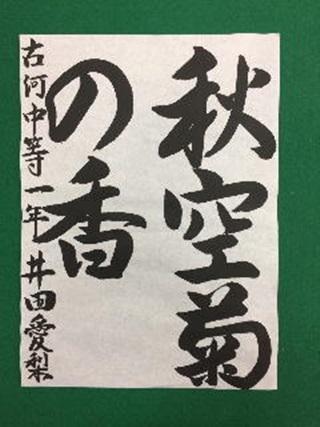 秋空菊
の香
古河中等一年 井田愛梨